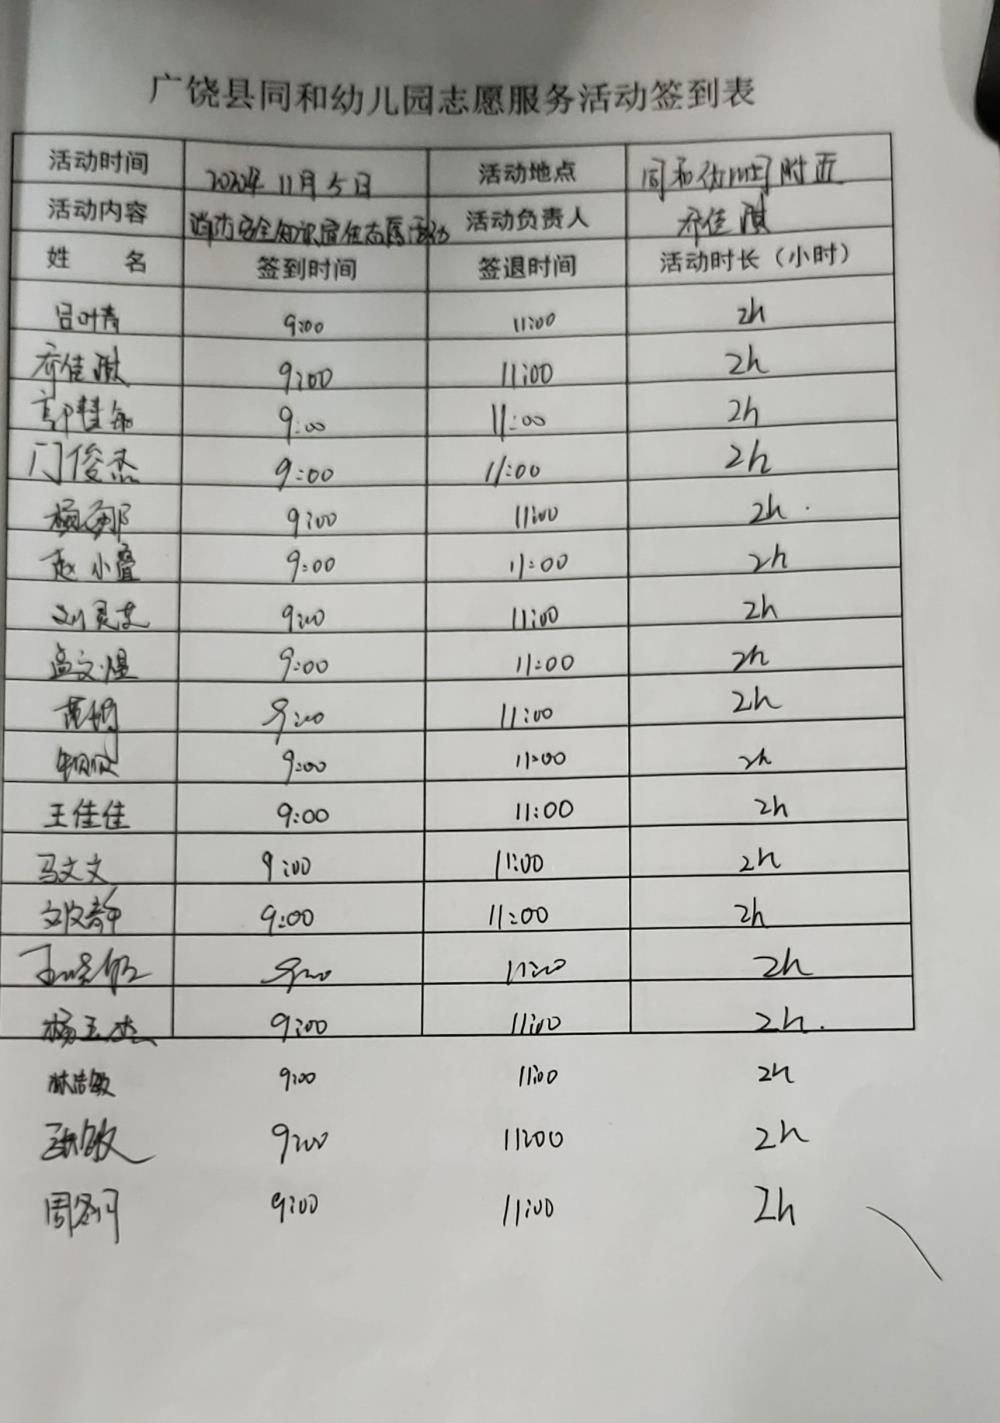 广饶县同和幼儿园志愿服务活动签到表
活动时间 11月5日 活动地点 同和幼儿园附近
活动内容 消防安全知识宣传志愿活动 活动负责人 乔佳琪
姓名 签到时间 签退时间 活动时长（小时）
吕叶青 9:00 11:00 2h
乔佳琪 9:00 11:00 2h
郭慧 9:00 11:00 2h
门俊杰 9:00 11:00 2h
杨 9:00 11:00 2h.
赵小叠 9:00 11:00 2h
刘灵芝 9:00 11:00 2h
孟文煜 9:00 11:00 2h
范 9:00 11:00 2h
9:00 11:00 2h
王佳佳 9:00 11:00 2h
马文文 9:00 11:00 2h
静 9:00 11:00 2h
9:00 11:00 2h
杨玉杰 9:00 11:00 2h.
敏 9:00 11:00 2h
敏 9:00 11:00 2h
周 9:00 11:00 2h